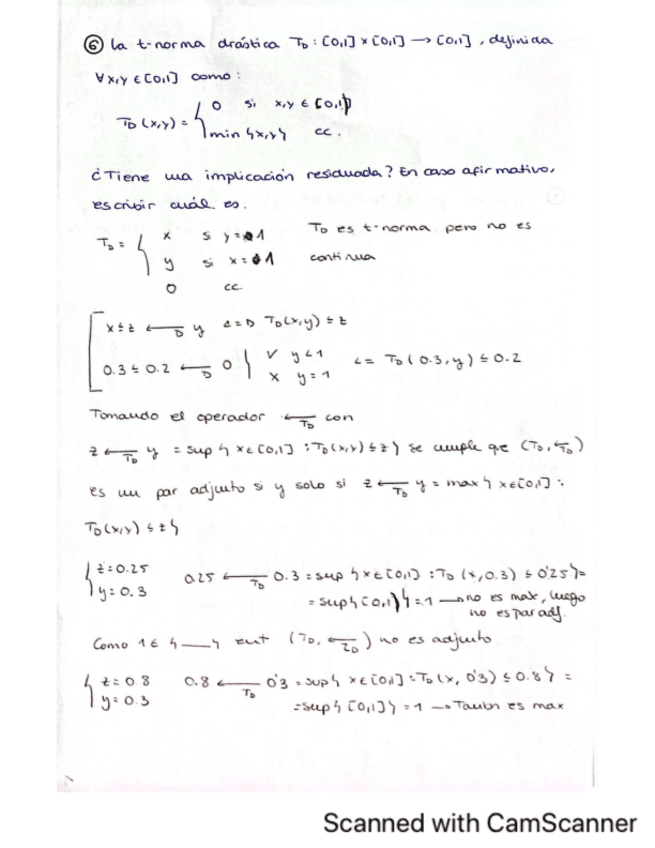 ⑥ La t-norma drástica T_D : [0,1] x [0,1] → [0,1], definida
∀x,y ∈ [0,1] como :
T_D (x,y) = { 0 si x,y ∈ [0,1)
min {x,y} cc.
¿Tiene una implicación residuada? En caso afirmativo,
escribir cuál es.
T_D = { x si y = 1 T_D es t-norma pero no es
y si x = 1 continua
0 cc.
x ≤ z ←_D y ⇐⇒ T_D(x,y) ≤ z
0.3 ≤ 0.2 ←_D 0 { ✓ y < 1 ⇐ T_D (0.3, y) ≤ 0.2
x y = 1
Tomando el operador ←_{T_D} con
z ←_{T_D} y = sup { x ∈ [0,1] : T_D (x,y) ≤ z } se cumple que (T_D, ←_{T_D})
es un par adjunto si y solo si z ←_{T_D} y = max { x ∈ [0,1] :
T_D (x,y) ≤ z }
{ z = 0.25 0.25 ←_{T_D} 0.3 = sup { x ∈ [0,1] : T_D (x, 0.3) ≤ 0'25 } =
y = 0.3 = sup { [0,1) } = 1 → no es max, luego
no es par adj.
Como 1 ∉ { — } ent (T_D, ←_{T_D}) no es adjunto
{ z = 0.8 0.8 ←_{T_D} 0'3 = sup { x ∈ [0,1] : T_D (x, 0'3) ≤ 0.8 } =
y = 0.3 = sup { [0,1] } = 1 → Tambn es max
Scanned with CamScanner